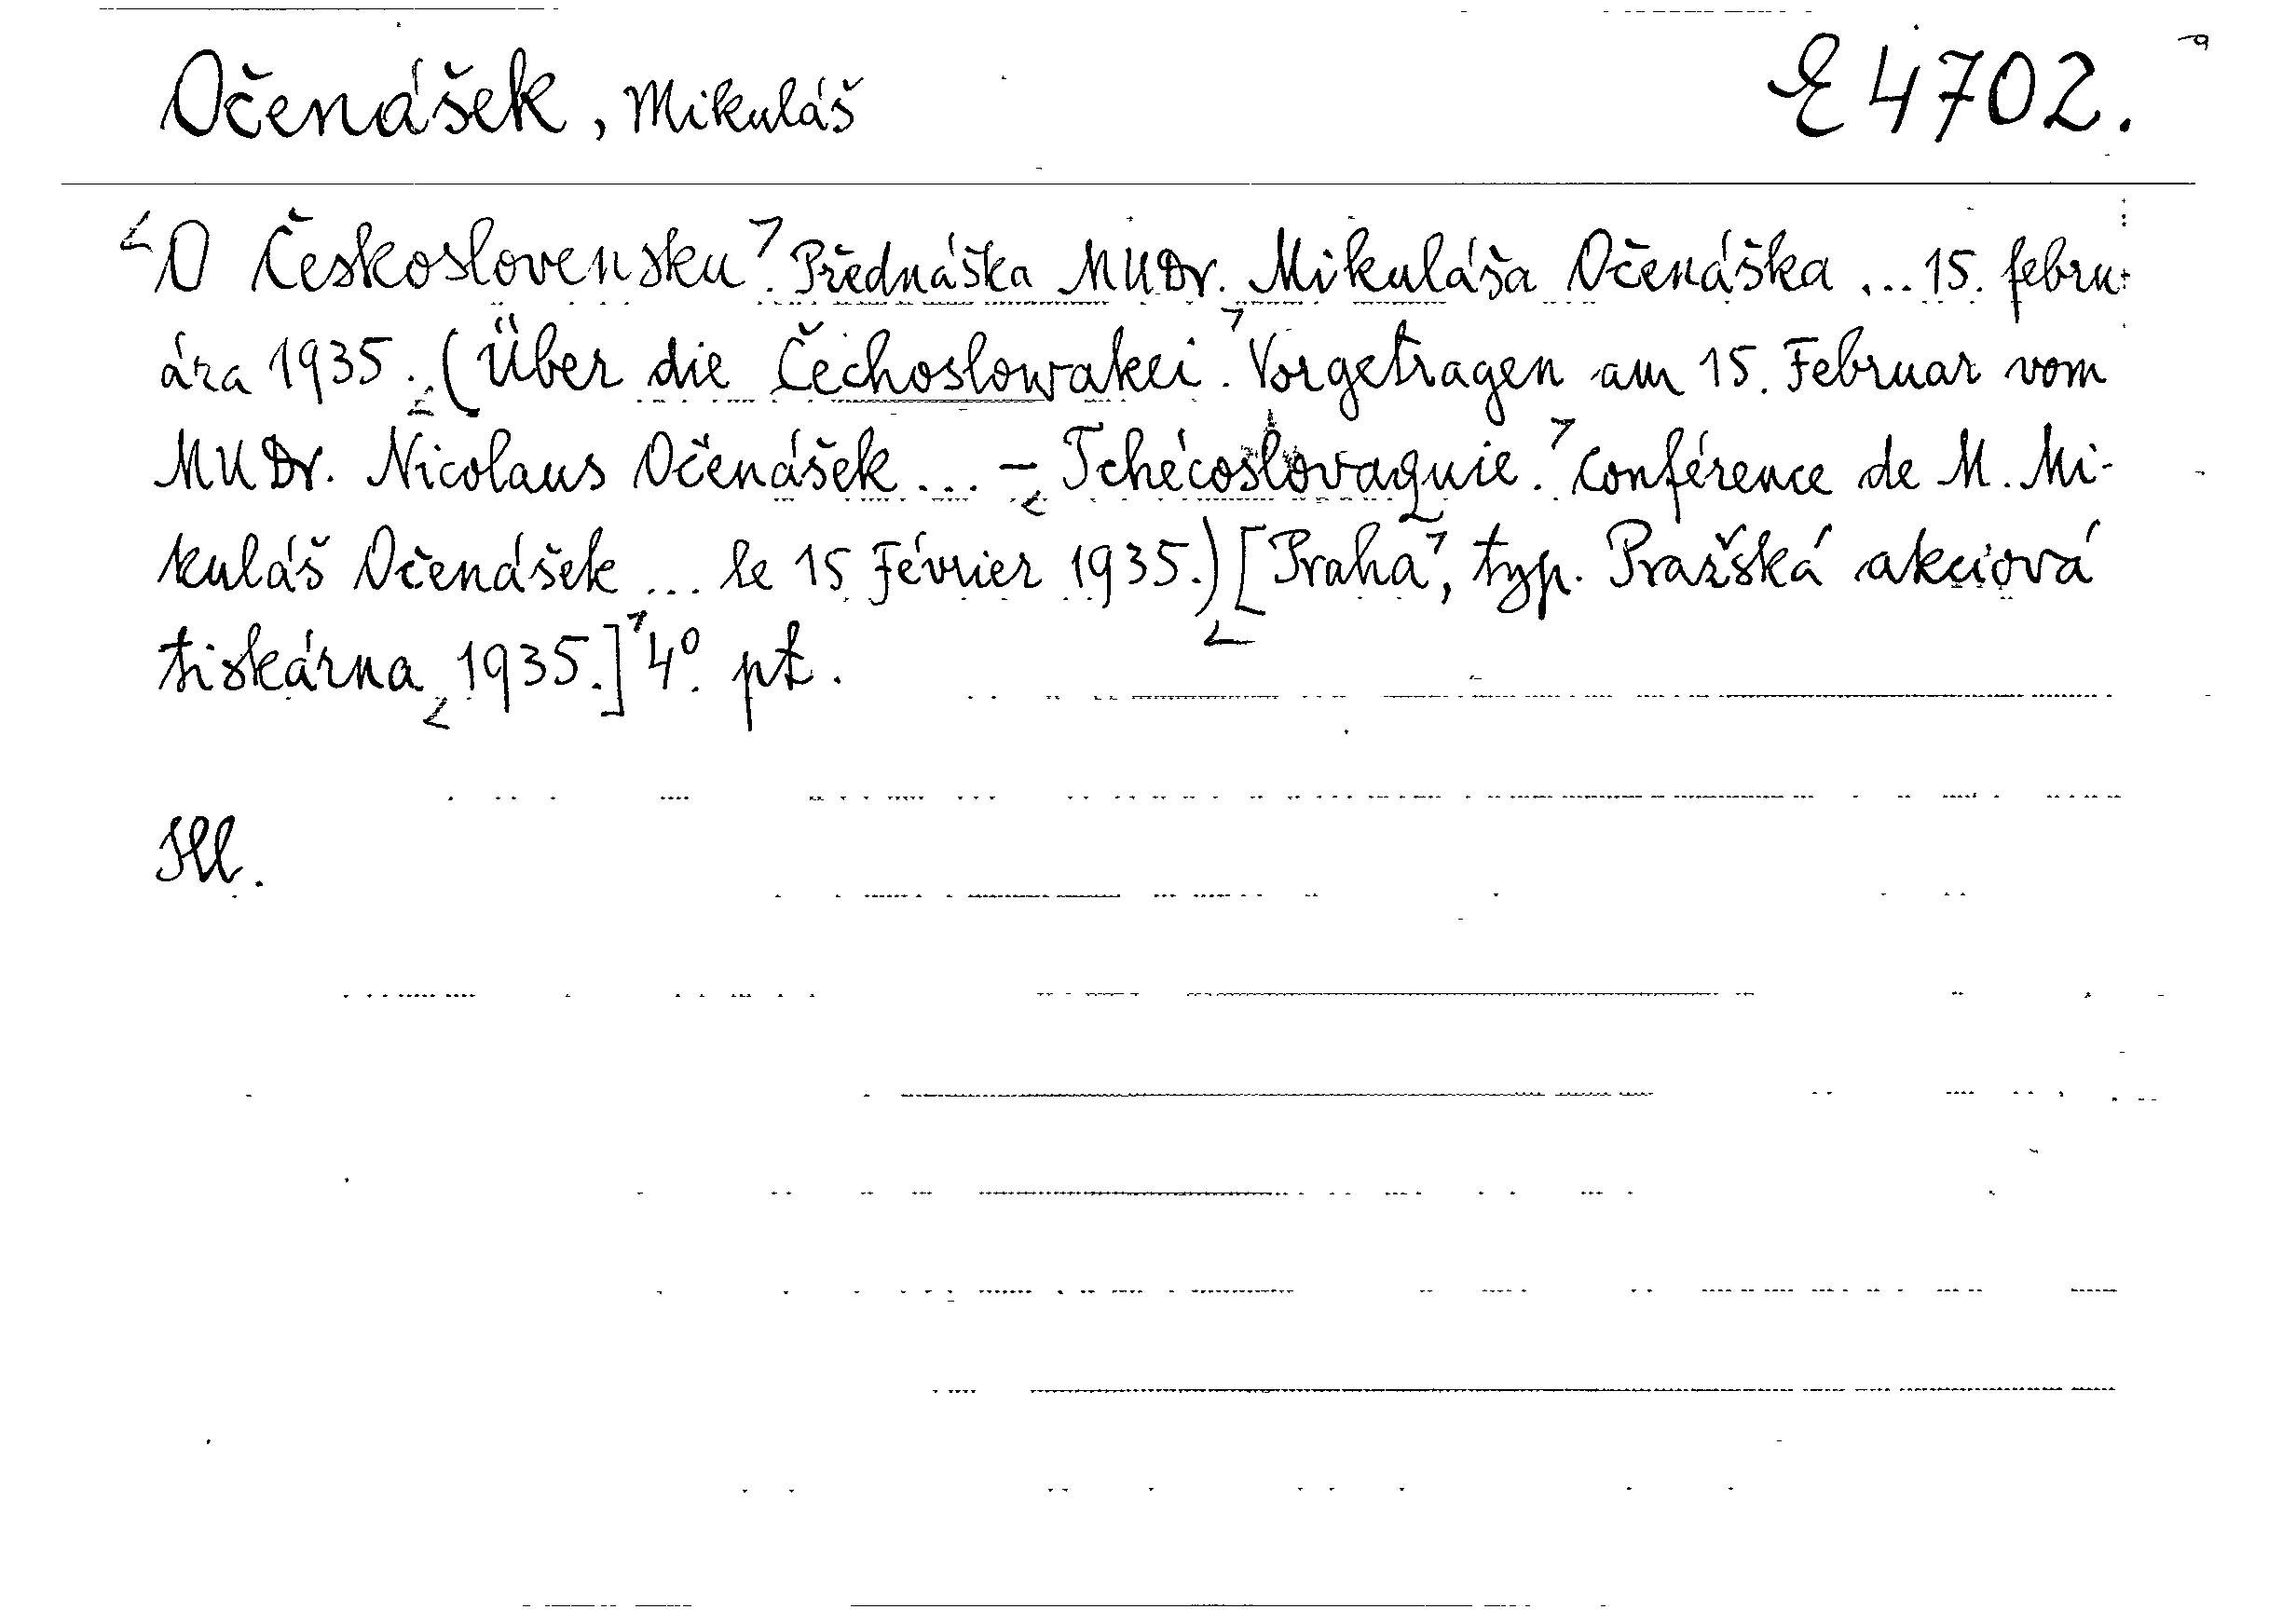 Očenášek, Mikuláš
E 4702.
O Československu. Přednáška MUDr. Mikuláša Očenáška ... 15. febru-
ára 1935. (Über die Čechoslowakei. Vorgetragen am 15. Februar vom
MUDr. Nicolaus Očenášek ... - Tchécoslovaquie. Conférence de M. Mi-
kuláš Očenášek ... le 15 Février 1935.) [Praha, typ. Pražská akciová
tiskárna, 1935.] 4° pt.